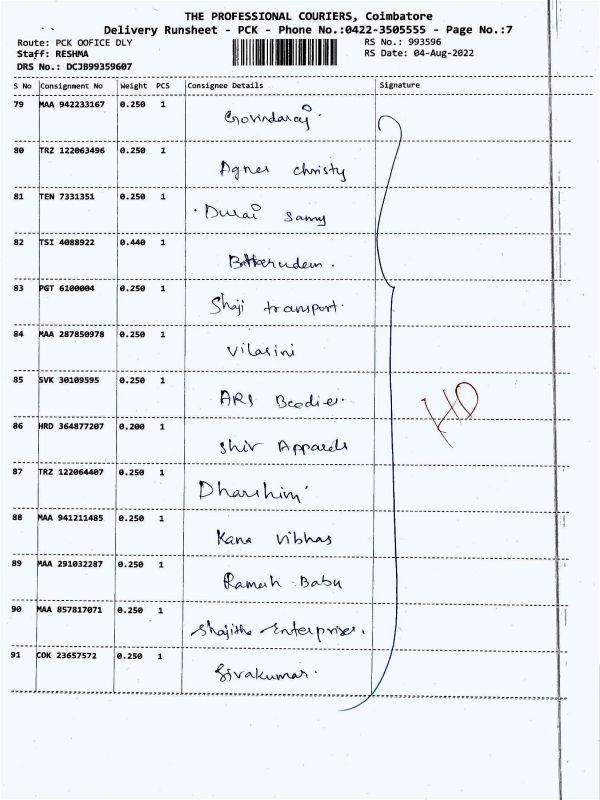 THE PROFESSIONAL COURIERS, Coimbatore
Delivery Runsheet - PCK - Phone No.:0422-3505555 - Page No.:7
Route: PCK OOFICE DLY RS No.: 993596
Staff: RESHMA RS Date: 04-Aug-2022
DRS No.: DCJB99359607
S No Consignment No Weight PCS Consignee Details Signature
79 MAA 942233167 0.250 1 Govindaraj
80 TRZ 122063496 0.250 1 Agnes christy
81 TEN 7331351 0.250 1 Durai Samy
82 TSI 4088922 0.440 1
83 PGT 6100004 0.250 1 Shaji transport.
84 MAA 287850978 0.250 1 Vilasini
85 SVK 30109595 0.250 1 ARS Beedies.
86 HRD 364877207 0.200 1 Shiv Apparels
87 TRZ 122064407 0.250 1 Dharshini
88 MAA 941211485 0.250 1 Kana Vibhas
89 MAA 291032287 0.250 1 Ramesh Babu
90 MAA 857817071 0.250 1 Shajitha Enterprises.
91 COK 23657572 0.250 1 Sivakumar.
HD